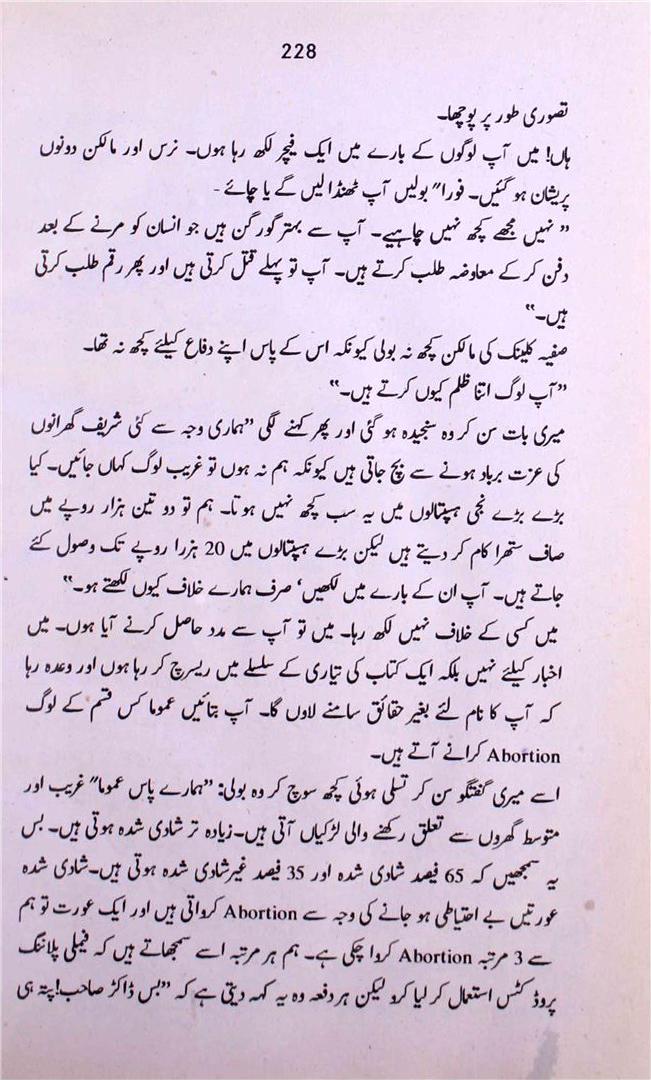 228
تصوری طور پر پوچھا۔
ہاں! میں آپ لوگوں کے بارے میں ایک فیچر لکھ رہا ہوں۔ نرس اور مالکن دونوں
پریشان ہو گئیں۔ فورا" بولیں آپ ٹھنڈا لیں گے یا چائے -
"نہیں مجھے کچھ نہیں چاہیے۔ آپ سے بہتر گورکن ہیں جو انسان کو مرنے کے بعد
دفن کر کے معاوضہ طلب کرتے ہیں۔ آپ تو پہلے قتل کرتی ہیں اور پھر رقم طلب کرتی
ہیں۔"
صفیہ کلینک کی مالکن کچھ نہ بولی کیونکہ اس کے پاس اپنے دفاع کیلئے کچھ نہ تھا۔
"آپ لوگ اتنا ظلم کیوں کرتے ہیں۔"
میری بات سن کر وہ سنجیدہ ہو گئی اور پھر کہنے لگی "ہماری وجہ سے کئی شریف گھرانوں
کی عزت برباد ہونے سے بچ جاتی ہیں کیونکہ ہم نہ ہوں تو غریب لوگ کہاں جائیں۔ کیا
بڑے بڑے نجی ہسپتالوں میں یہ سب کچھ نہیں ہوتا۔ ہم تو دو تین ہزار روپے میں
صاف ستھرا کام کر دیتے ہیں لیکن بڑے ہسپتالوں میں 20 ہزرا روپے تک وصول کئے
جاتے ہیں۔ آپ ان کے بارے میں لکھیں' صرف ہمارے خلاف کیوں لکھتے ہو۔"
میں کسی کے خلاف نہیں لکھ رہا۔ میں تو آپ سے مدد حاصل کرنے آیا ہوں۔ میں
اخبار کیلئے نہیں بلکہ ایک کتاب کی تیاری کے سلسلے میں ریسرچ کر رہا ہوں اور وعدہ رہا
کہ آپ کا نام لئے بغیر حقائق سامنے لاوں گا۔ آپ بتائیں عموما کس قسم کے لوگ
Abortion کرانے آتے ہیں۔
اسے میری گفتگو سن کر تسلی ہوئی کچھ سوچ کر وہ بولی: "ہمارے پاس عموما" غریب اور
متوسط گھروں سے تعلق رکھنے والی لڑکیاں آتی ہیں۔زیادہ تر شادی شدہ ہوتی ہیں۔ بس
یہ سمجھیں کہ 65 فیصد شادی شدہ اور 35 فیصد غیرشادی شدہ ہوتی ہیں۔شادی شدہ
عورتیں بے احتیاطی ہو جانے کی وجہ سے Abortion کرواتی ہیں اور ایک عورت تو ہم
سے 3 مرتبہ Abortion کروا چکی ہے۔ ہم ہر مرتبہ اسے سمجھاتے ہیں کہ فیملی پلاننگ
پروڈکٹس استعمال کر لیا کرو لیکن ہر دفعہ وہ یہ کہہ دیتی ہے کہ "بس ڈاکٹر صاحب! پتہ ہی